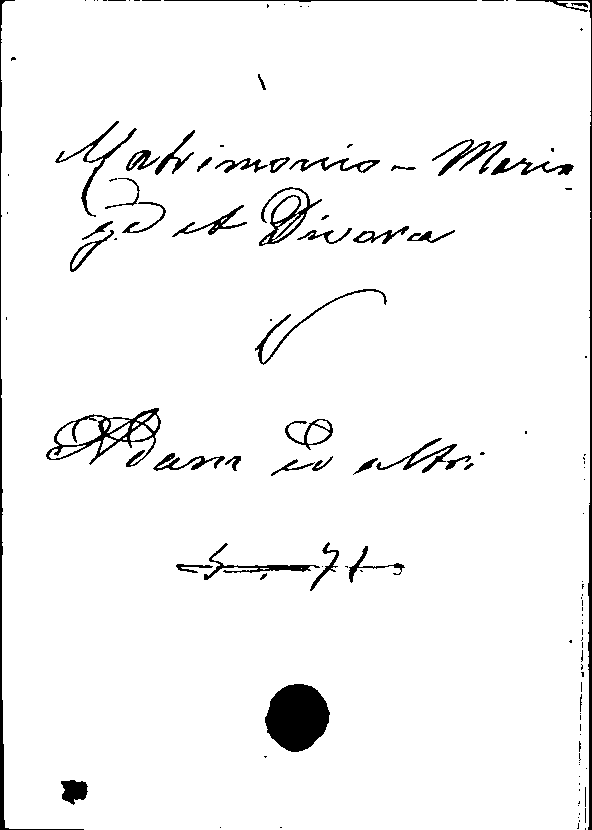 Matrimonio - Maria
ge et Divorce
V
Adam ed altri
5. 71.